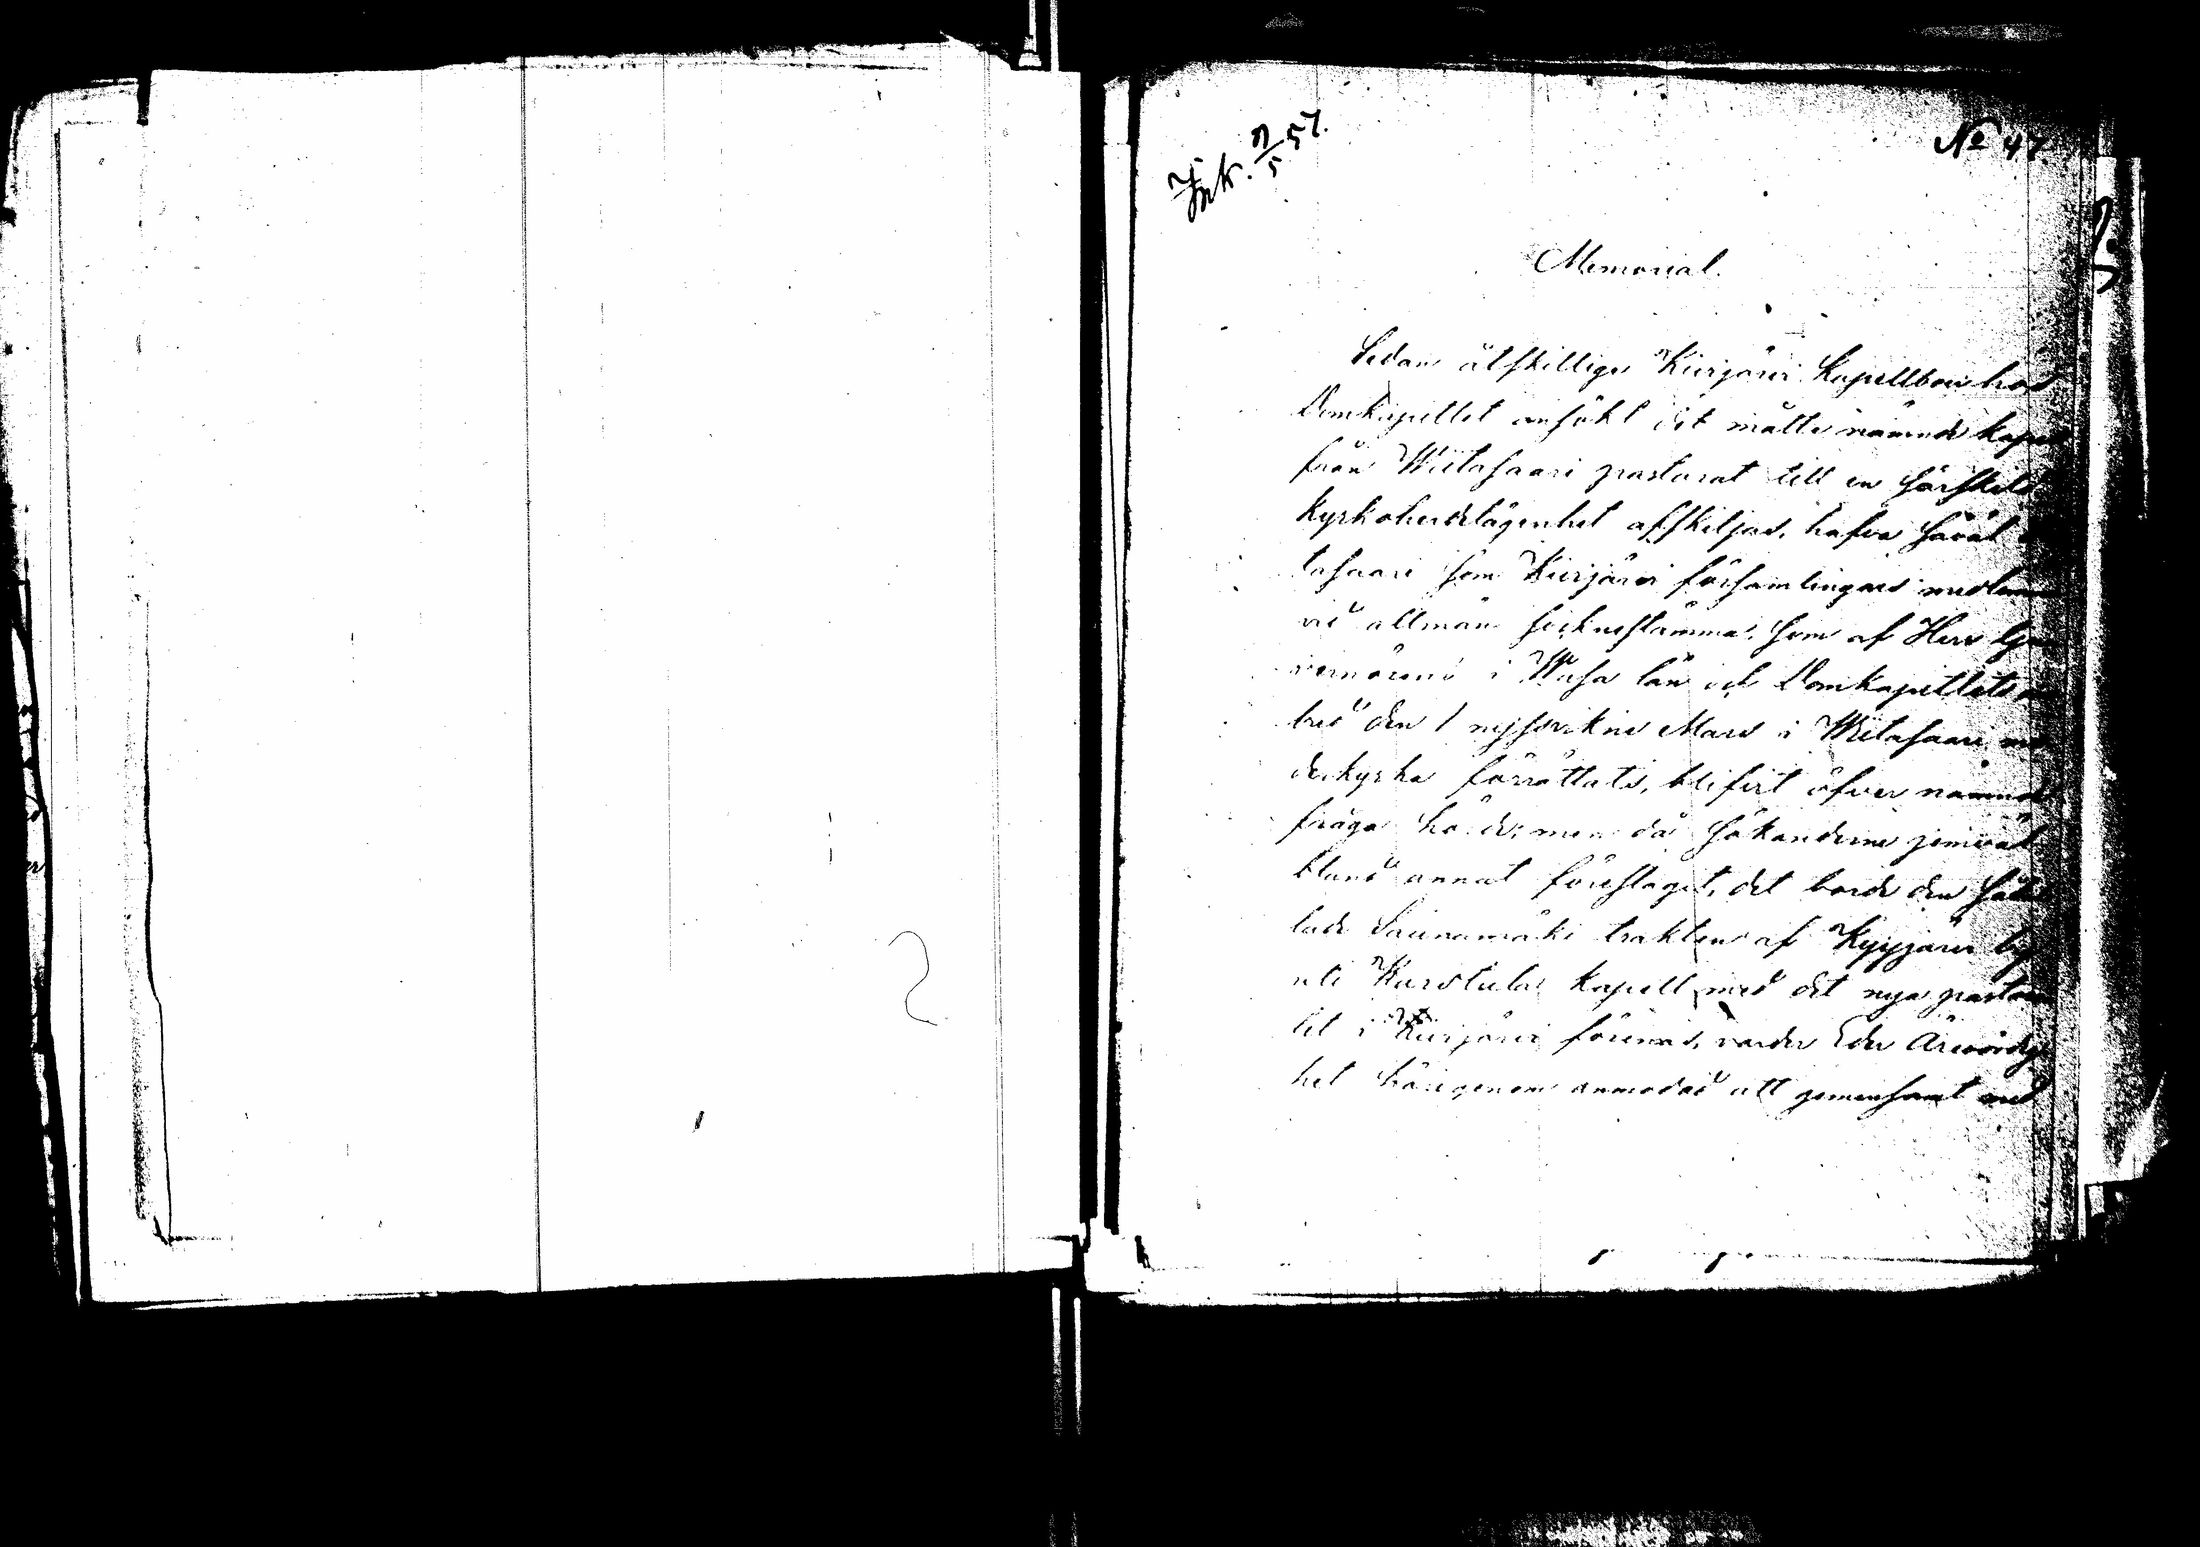 Ink. 9/5 57.
No 47.
Memorial.
Sedan åtskillige Kivijärvi Kapellboer hos
Domkapitlet ansökt det måtte nämnde kapell
från Wiitasaari pastorat till en särskild
kyrkoherdelägenhet afskiljas, hafva såväl
tasaari som Kivijärvi församlingars medlemmar
vid allmän socknestämma, som af Herr Gu
vernörens i Wasa län och Domkapitlets
bud den 1 nyssvikne Mars i Wiitasaari mo
derkyrka förrättats, blifvit öfver nämnde
fråga hörde; men då sökanderne jemväl
bland annat föreslaget, det borde den så kal
lade Saunamäki trakten af Kyyjärvi by
uti Karstula kapell med det nya pastora
tet i Kivijärvi förenas, varder Eder Ärevördig
het härigenom anmodad att gemensamt med